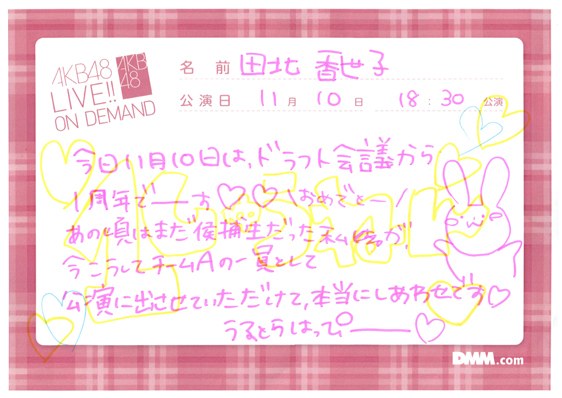 AKB48
LIVE!!
ON DEMAND
AKB
48
名 前 田北 香世子
公演日 11月 10日 18:30 公演
今日11月10日は、ドラフト会議から
1周年でーーす♡♡ \おめでとー/
あの頃はまだ候補生だった私が、
今こうしてチームAの一員として
公演に出させていただけて、本当にしあわせです♡
うるとらはっぴーーー♡
DMM.com